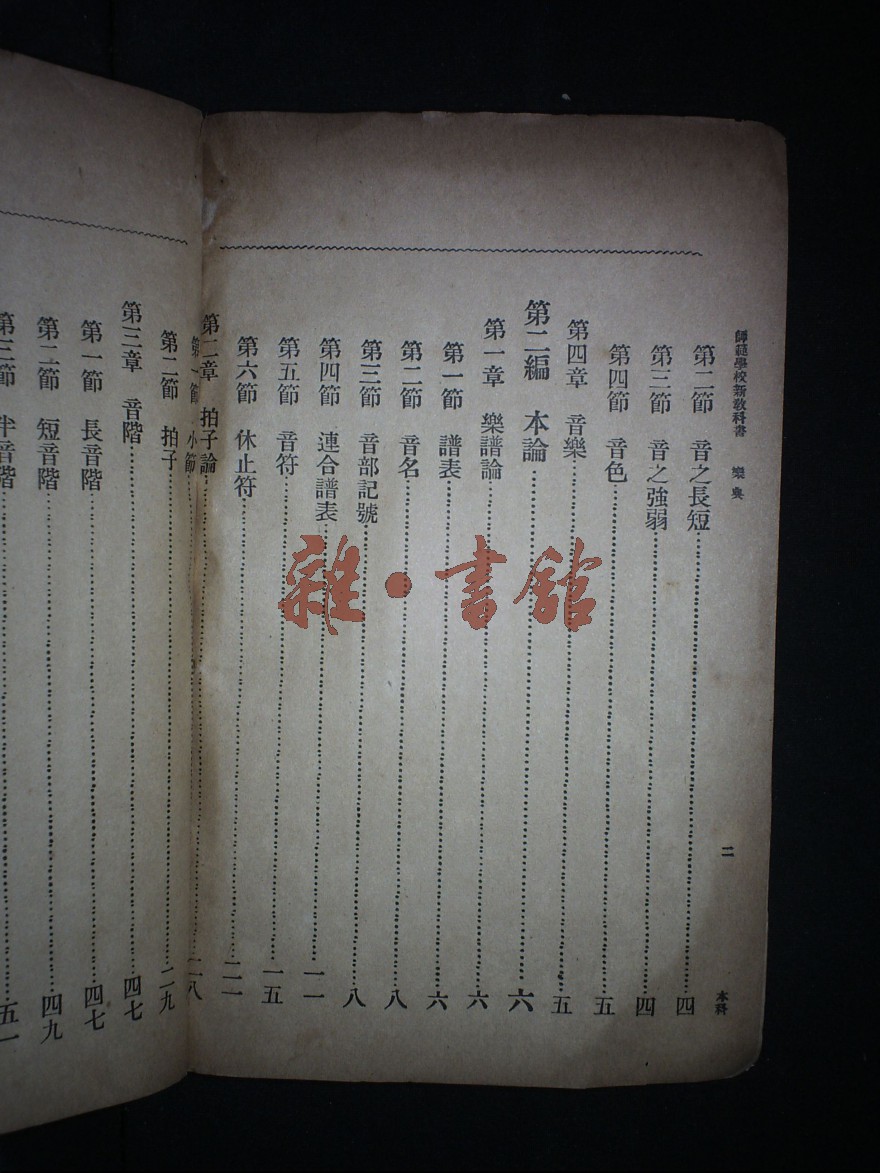 師範學校新教科書 樂典 二 本科
第二節 音之長短 四
第三節 音之強弱 四
第四節 音色 五
第四章 音樂 五
第二編 本論 六
第一章 樂譜論 六
第一節 譜表 六
第二節 音名 八
第三節 音部記號 八
第四節 連合譜表 一一
第五節 音符 一五
第六節 休止符 二一
第二章 拍子論
第一節 小節 二八
第二節 拍子 二九
第三章 音階 四七
第一節 長音階 四七
第二節 短音階 四九
第三節 半音階 五一
雜·書館